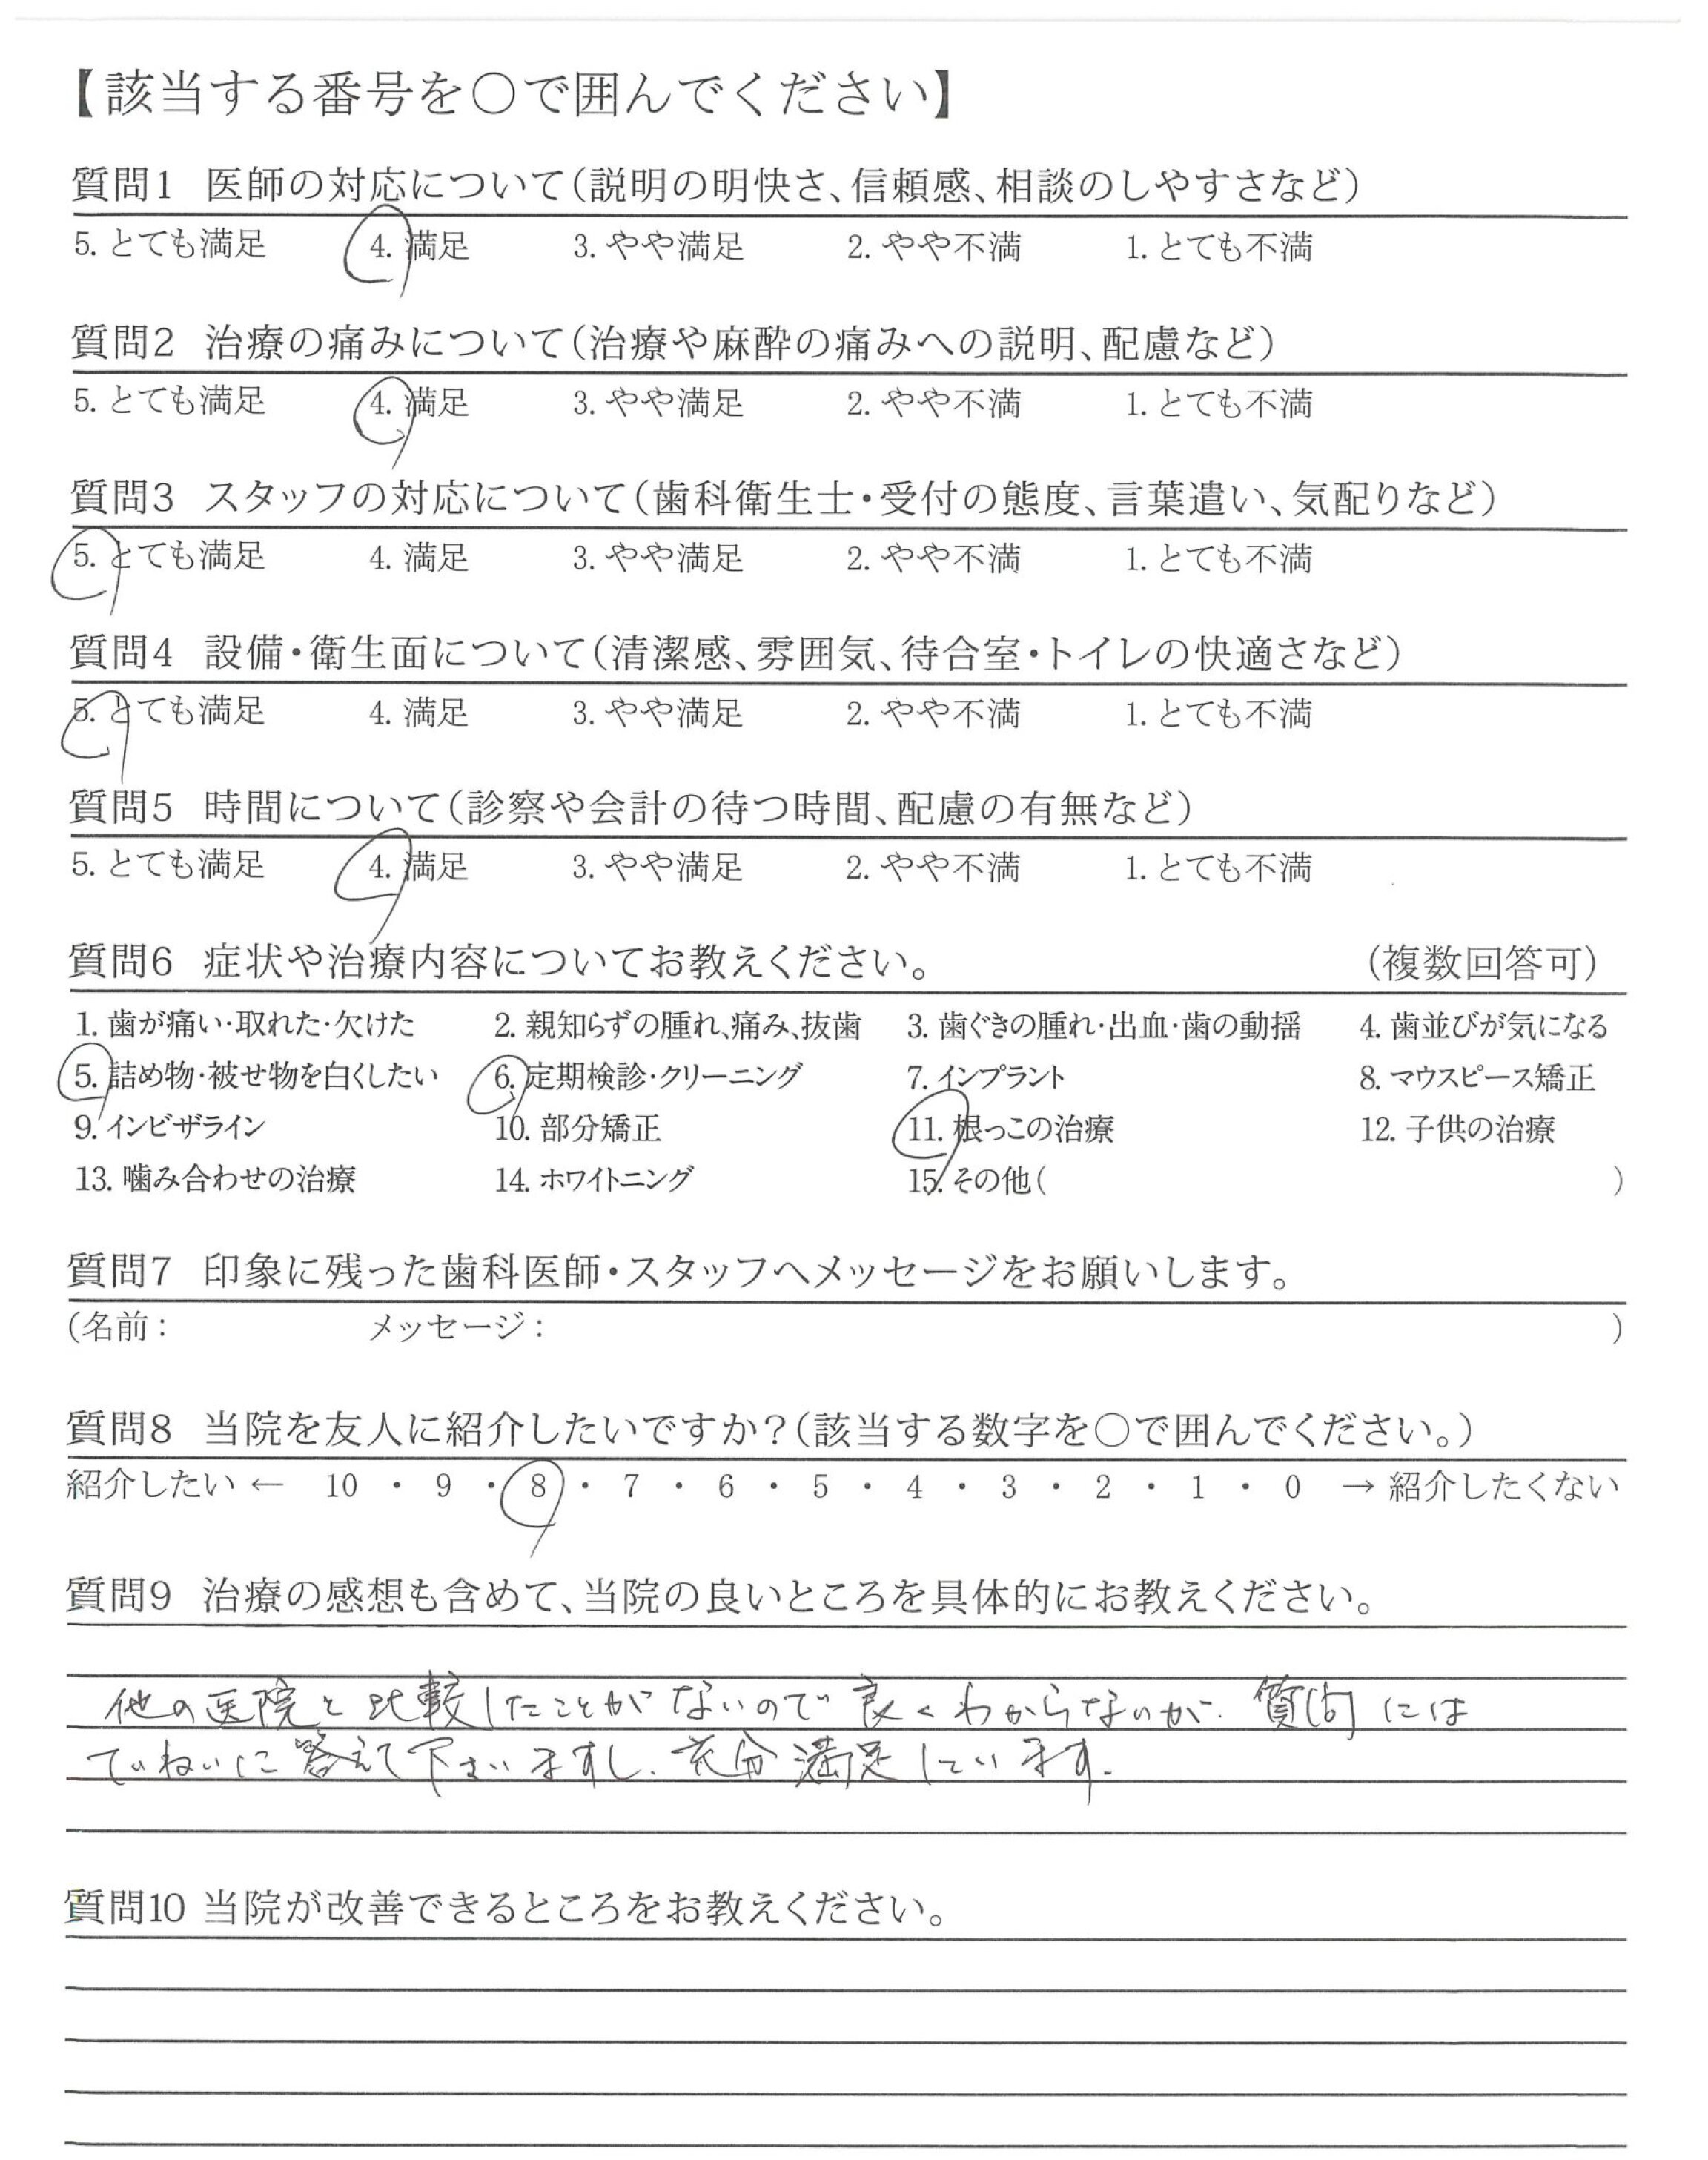 【該当する番号を○で囲んでください】
質問1 医師の対応について(説明の明快さ、信頼感、相談のしやすさなど)
5. とても満足 4. 満足 3. やや満足 2. やや不満 1. とても不満
質問2 治療の痛みについて(治療や麻酔の痛みへの説明、配慮など)
5. とても満足 4. 満足 3. やや満足 2. やや不満 1. とても不満
質問3 スタッフの対応について(歯科衛生士・受付の態度、言葉遣い、気配りなど)
5. とても満足 4. 満足 3. やや満足 2. やや不満 1. とても不満
質問4 設備・衛生面について(清潔感、雰囲気、待合室・トイレの快適さなど)
5. とても満足 4. 満足 3. やや満足 2. やや不満 1. とても不満
質問5 時間について(診察や会計の待つ時間、配慮の有無など)
5. とても満足 4. 満足 3. やや満足 2. やや不満 1. とても不満
質問6 症状や治療内容についてお教えください。 (複数回答可)
1. 歯が痛い・取れた・欠けた 2. 親知らずの腫れ、痛み、抜歯 3. 歯ぐきの腫れ・出血・歯の動揺 4. 歯並びが気になる
5. 詰め物・被せ物を白くしたい 6. 定期検診・クリーニング 7. インプラント 8. マウスピース矯正
9. インビザライン 10. 部分矯正 11. 根っこの治療 12. 子供の治療
13. 噛み合わせの治療 14. ホワイトニング 15. その他( )
質問7 印象に残った歯科医師・スタッフへメッセージをお願いします。
(名前: メッセージ: )
質問8 当院を友人に紹介したいですか?(該当する数字を○で囲んでください。)
紹介したい ← 10 ・ 9 ・ 8 ・ 7 ・ 6 ・ 5 ・ 4 ・ 3 ・ 2 ・ 1 ・ 0 → 紹介したくない
質問9 治療の感想も含めて、当院の良いところを具体的にお教えください。
他の医院と比較したことがないので良くわからないが、質問には
ていねいに答えて下さいますし、充分満足しています.
質問10 当院が改善できるところをお教えください。